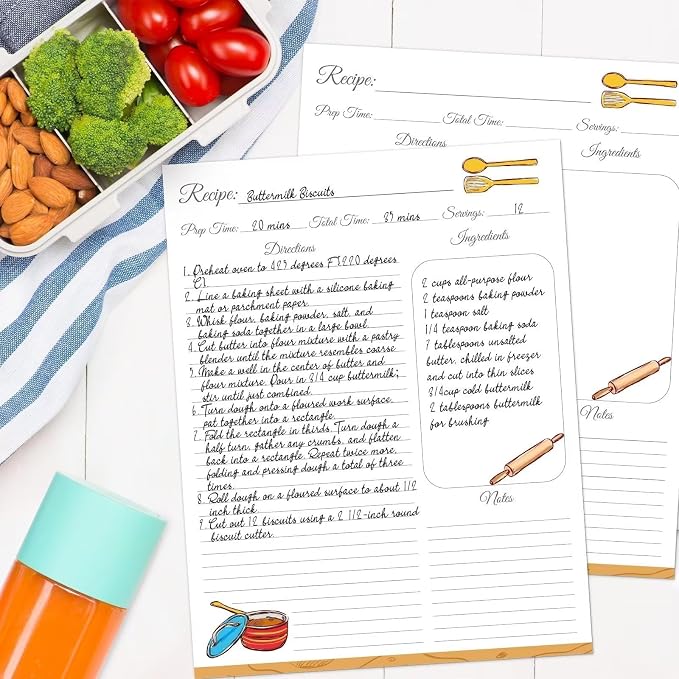 Recipe:
Prep Time: Total Time: Servings:
Directions Ingredients
Notes
Recipe: Buttermilk Biscuits
Prep Time: 20 mins Total Time: 35 mins Servings: 12
Directions
1. Preheat oven to 425 degrees F(220 degrees
C)
2. Line a baking sheet with a silicone baking
mat or parchment paper.
3. Whisk flour, baking powder, salt, and
baking soda together in a large bowl.
4. Cut butter into flour mixture with a pastry
blender until the mixture resembles coarse
5. Make a well in the center of butter and
flour mixture. Pour in 3/4 cup buttermilk;
stir until just combined.
6. Turn dough onto a floured work surface,
pat together into a rectangle.
7. Fold the rectangle in thirds. Turn dough a
half turn, gather any crumbs, and flatten
back into a rectangle. Repeat twice more,
folding and pressing dough a total of three
times.
8. Roll dough on a floured surface to about 1/2
inch thick.
9. Cut out 12 biscuits using a 2 1/2-inch round
biscuit cutter.
Ingredients
2 cups all-purpose flour
2 teaspoons baking powder
1 teaspoon salt
1/4 teaspoon baking soda
7 tablespoons unsalted
butter, chilled in freezer
and cut into thin slices
3/4cup cold buttermilk
2 tablespoons buttermilk
for brushing
Notes